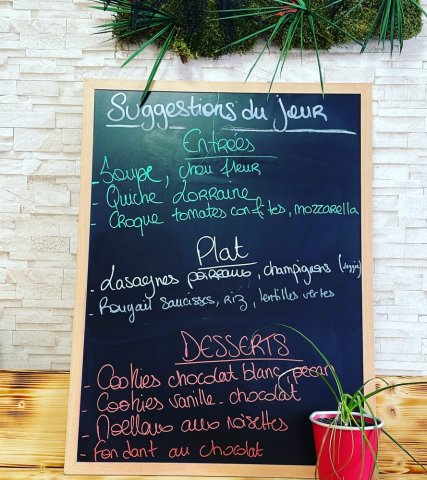 Suggestions du jour
Entrées
- Soupe, chou fleur
- Quiche Lorraine
- Croque tomates confites, mozzarella
Plat
- Lasagnes poireaux, champignons (veggie)
- Rougail saucisses, riz, lentilles vertes
DESSERTS
- Cookies chocolat blanc, pécan
- Cookies vanille - chocolat
- Moelleux aux noisettes
- Fondant au chocolat